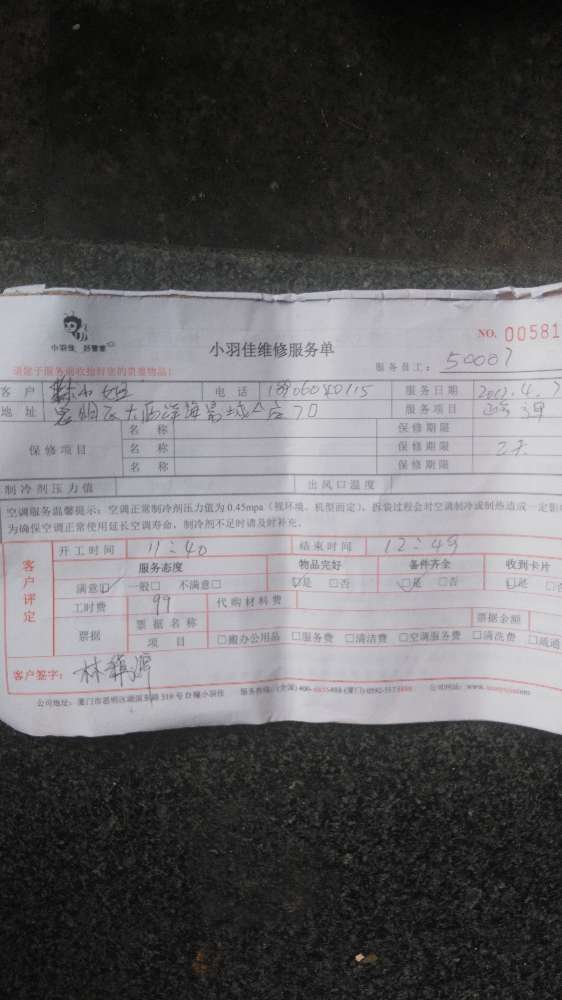 小羽佳 好管家
小羽佳维修服务单
NO. 00581
请您于服务前收拾好您的贵重物品!
服务员工: 50007
客 户 林小姐 电 话 服务日期
地 址 服务项目
名 称 保修期限
保修项目 名 称 保修期限 2天
名 称 保修期限
制冷剂压力值 出风口温度
空调服务温馨提示: 空调正常制冷剂压力值为 0.45mpa (视环境、机型而定), 拆装过程会对空调制冷或制热造成一定影
为确保空调正常使用延长空调寿命, 制冷剂不足时请及时补充。
客户评定
开工时间 11:40 结束时间 12:49
服务态度 物品完好 备件齐全 收到卡片
满意☑ 一般☐ 不满意☐ ☑是 ☐否 ☑是 ☐否 ☑是
工时费 99 代购材料费
票据 票据名称 票据金额
项 目 ☐搬办公用品 ☐服务费 ☐清洁费 ☐空调服务费 ☐清洗费 ☐疏通
客户签字:
公司地址: 厦门市思明区湖滨东路 319 号 D 幢小羽佳 服务热线: (全国) 400- (厦门) 0592- 公司网址: